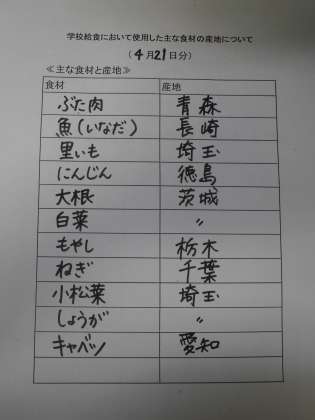 学校給食において使用した主な食材の産地について
（4月21日分）
≪主な食材と産地≫
食材 産地
ぶた肉 青森
魚(いなだ) 長崎
里いも 埼玉
にんじん 徳島
大根 茨城
白菜 〃
もやし 栃木
ねぎ 千葉
小松菜 埼玉
しょうが 〃
キャベツ 愛知